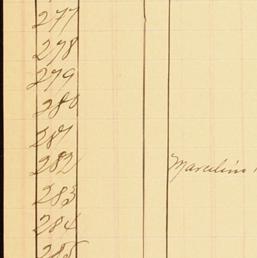 277
278
279
280
281
282 Marculino
283
284
285